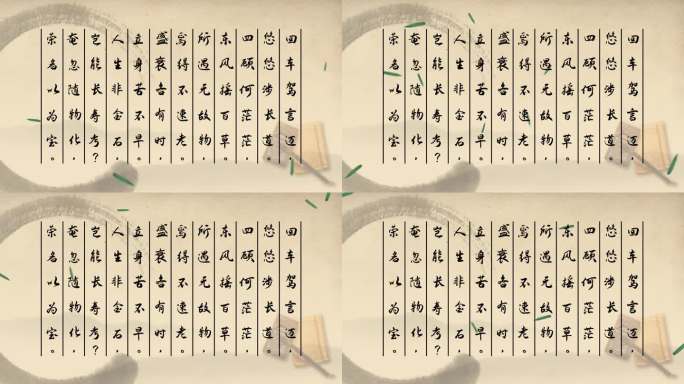 回车驾言迈,
悠悠涉长道。
四顾何茫茫,
东风摇百草。
所遇无故物,
焉得不速老。
盛衰各有时,
立身苦不早。
人生非金石,
岂能长寿考?
奄忽随物化,
荣名以为宝。
回车驾言迈,
悠悠涉长道。
四顾何茫茫,
东风摇百草。
所遇无故物,
焉得不速老。
盛衰各有时,
立身苦不早。
人生非金石,
岂能长寿考?
奄忽随物化,
荣名以为宝。
回车驾言迈,
悠悠涉长道。
四顾何茫茫,
东风摇百草。
所遇无故物,
焉得不速老。
盛衰各有时,
立身苦不早。
人生非金石,
岂能长寿考?
奄忽随物化,
荣名以为宝。
回车驾言迈,
悠悠涉长道。
四顾何茫茫,
东风摇百草。
所遇无故物,
焉得不速老。
盛衰各有时,
立身苦不早。
人生非金石,
岂能长寿考?
奄忽随物化,
荣名以为宝。